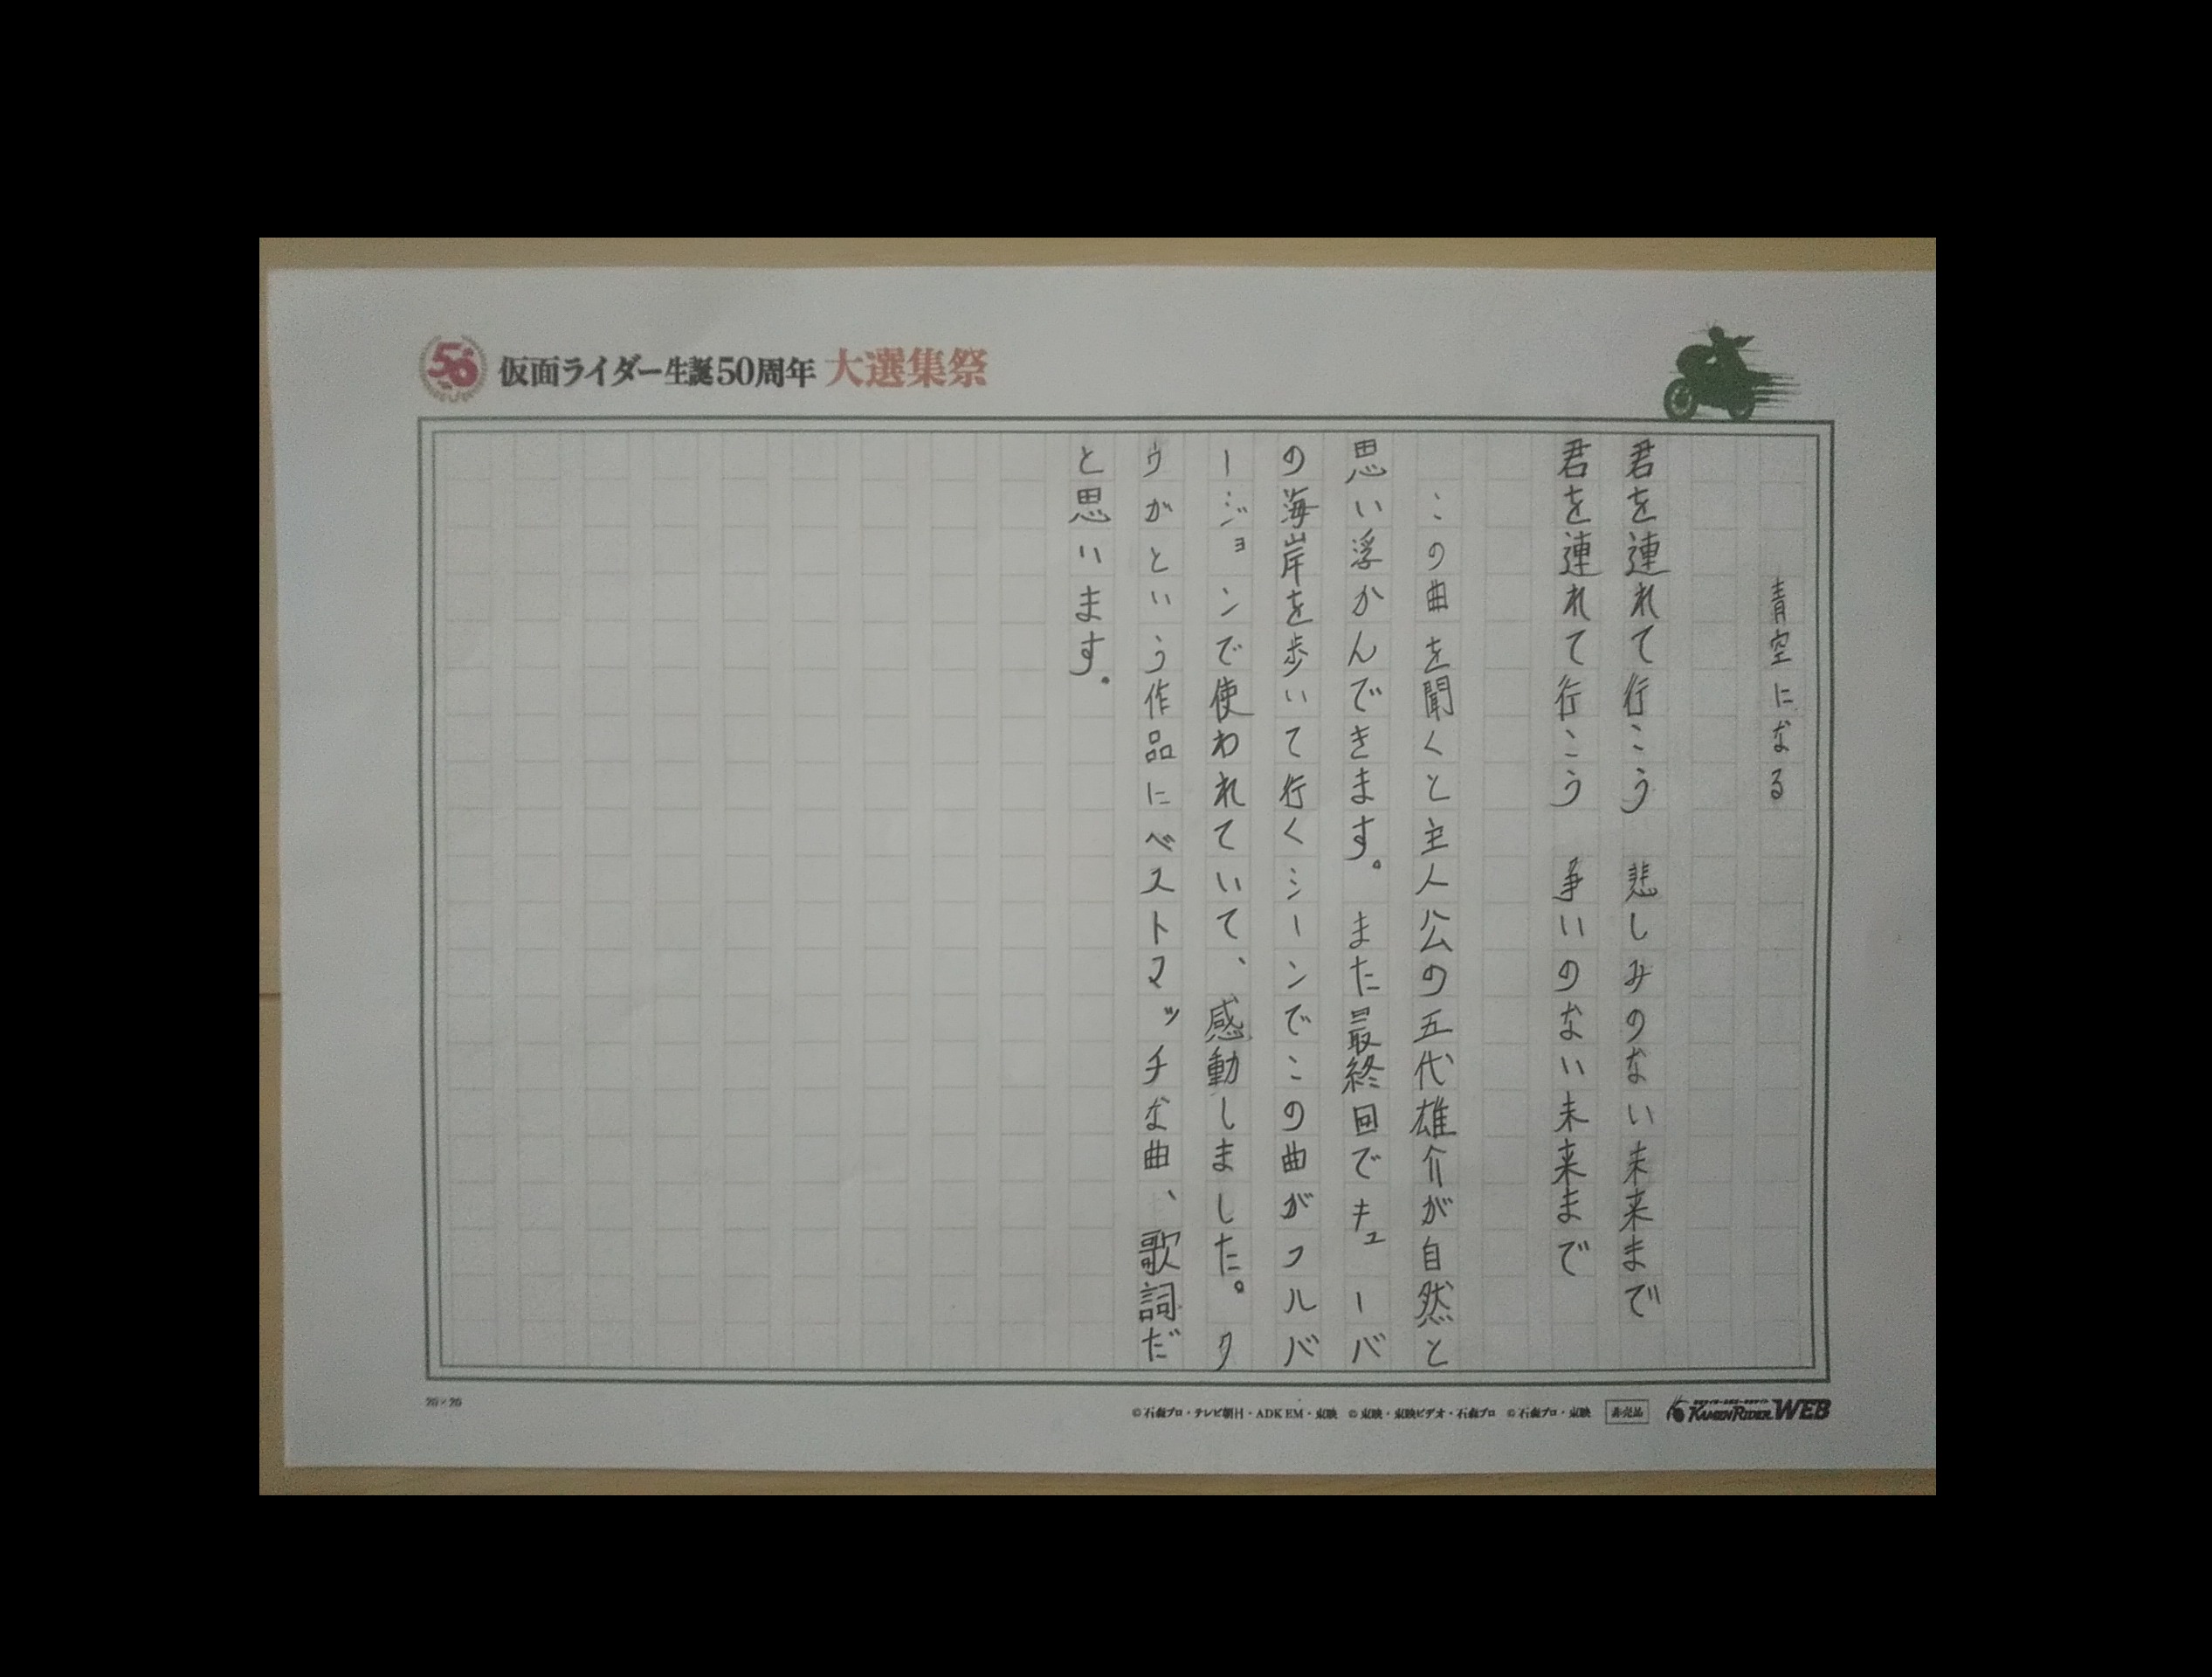 仮面ライダー生誕50周年 大選集祭
青空になる
君を連れて行こう 悲しみのない未来まで
君を連れて行こう 争いのない未来まで
この曲を聞くと主人公の五代雄介が自然と
思い浮かんできます。また最終回でキューバ
の海岸を歩いて行くシーンでこの曲がフルバ
ージョンで使われていて、感動しました。ク
ウガという作品にベストマッチな曲、歌詞だ
と思います。
20×20
©石森プロ・テレビ朝日・ADK EM・東映 ©東映・東映ビデオ・石森プロ ©石森プロ・東映
非売品
KAMEN RIDER WEB